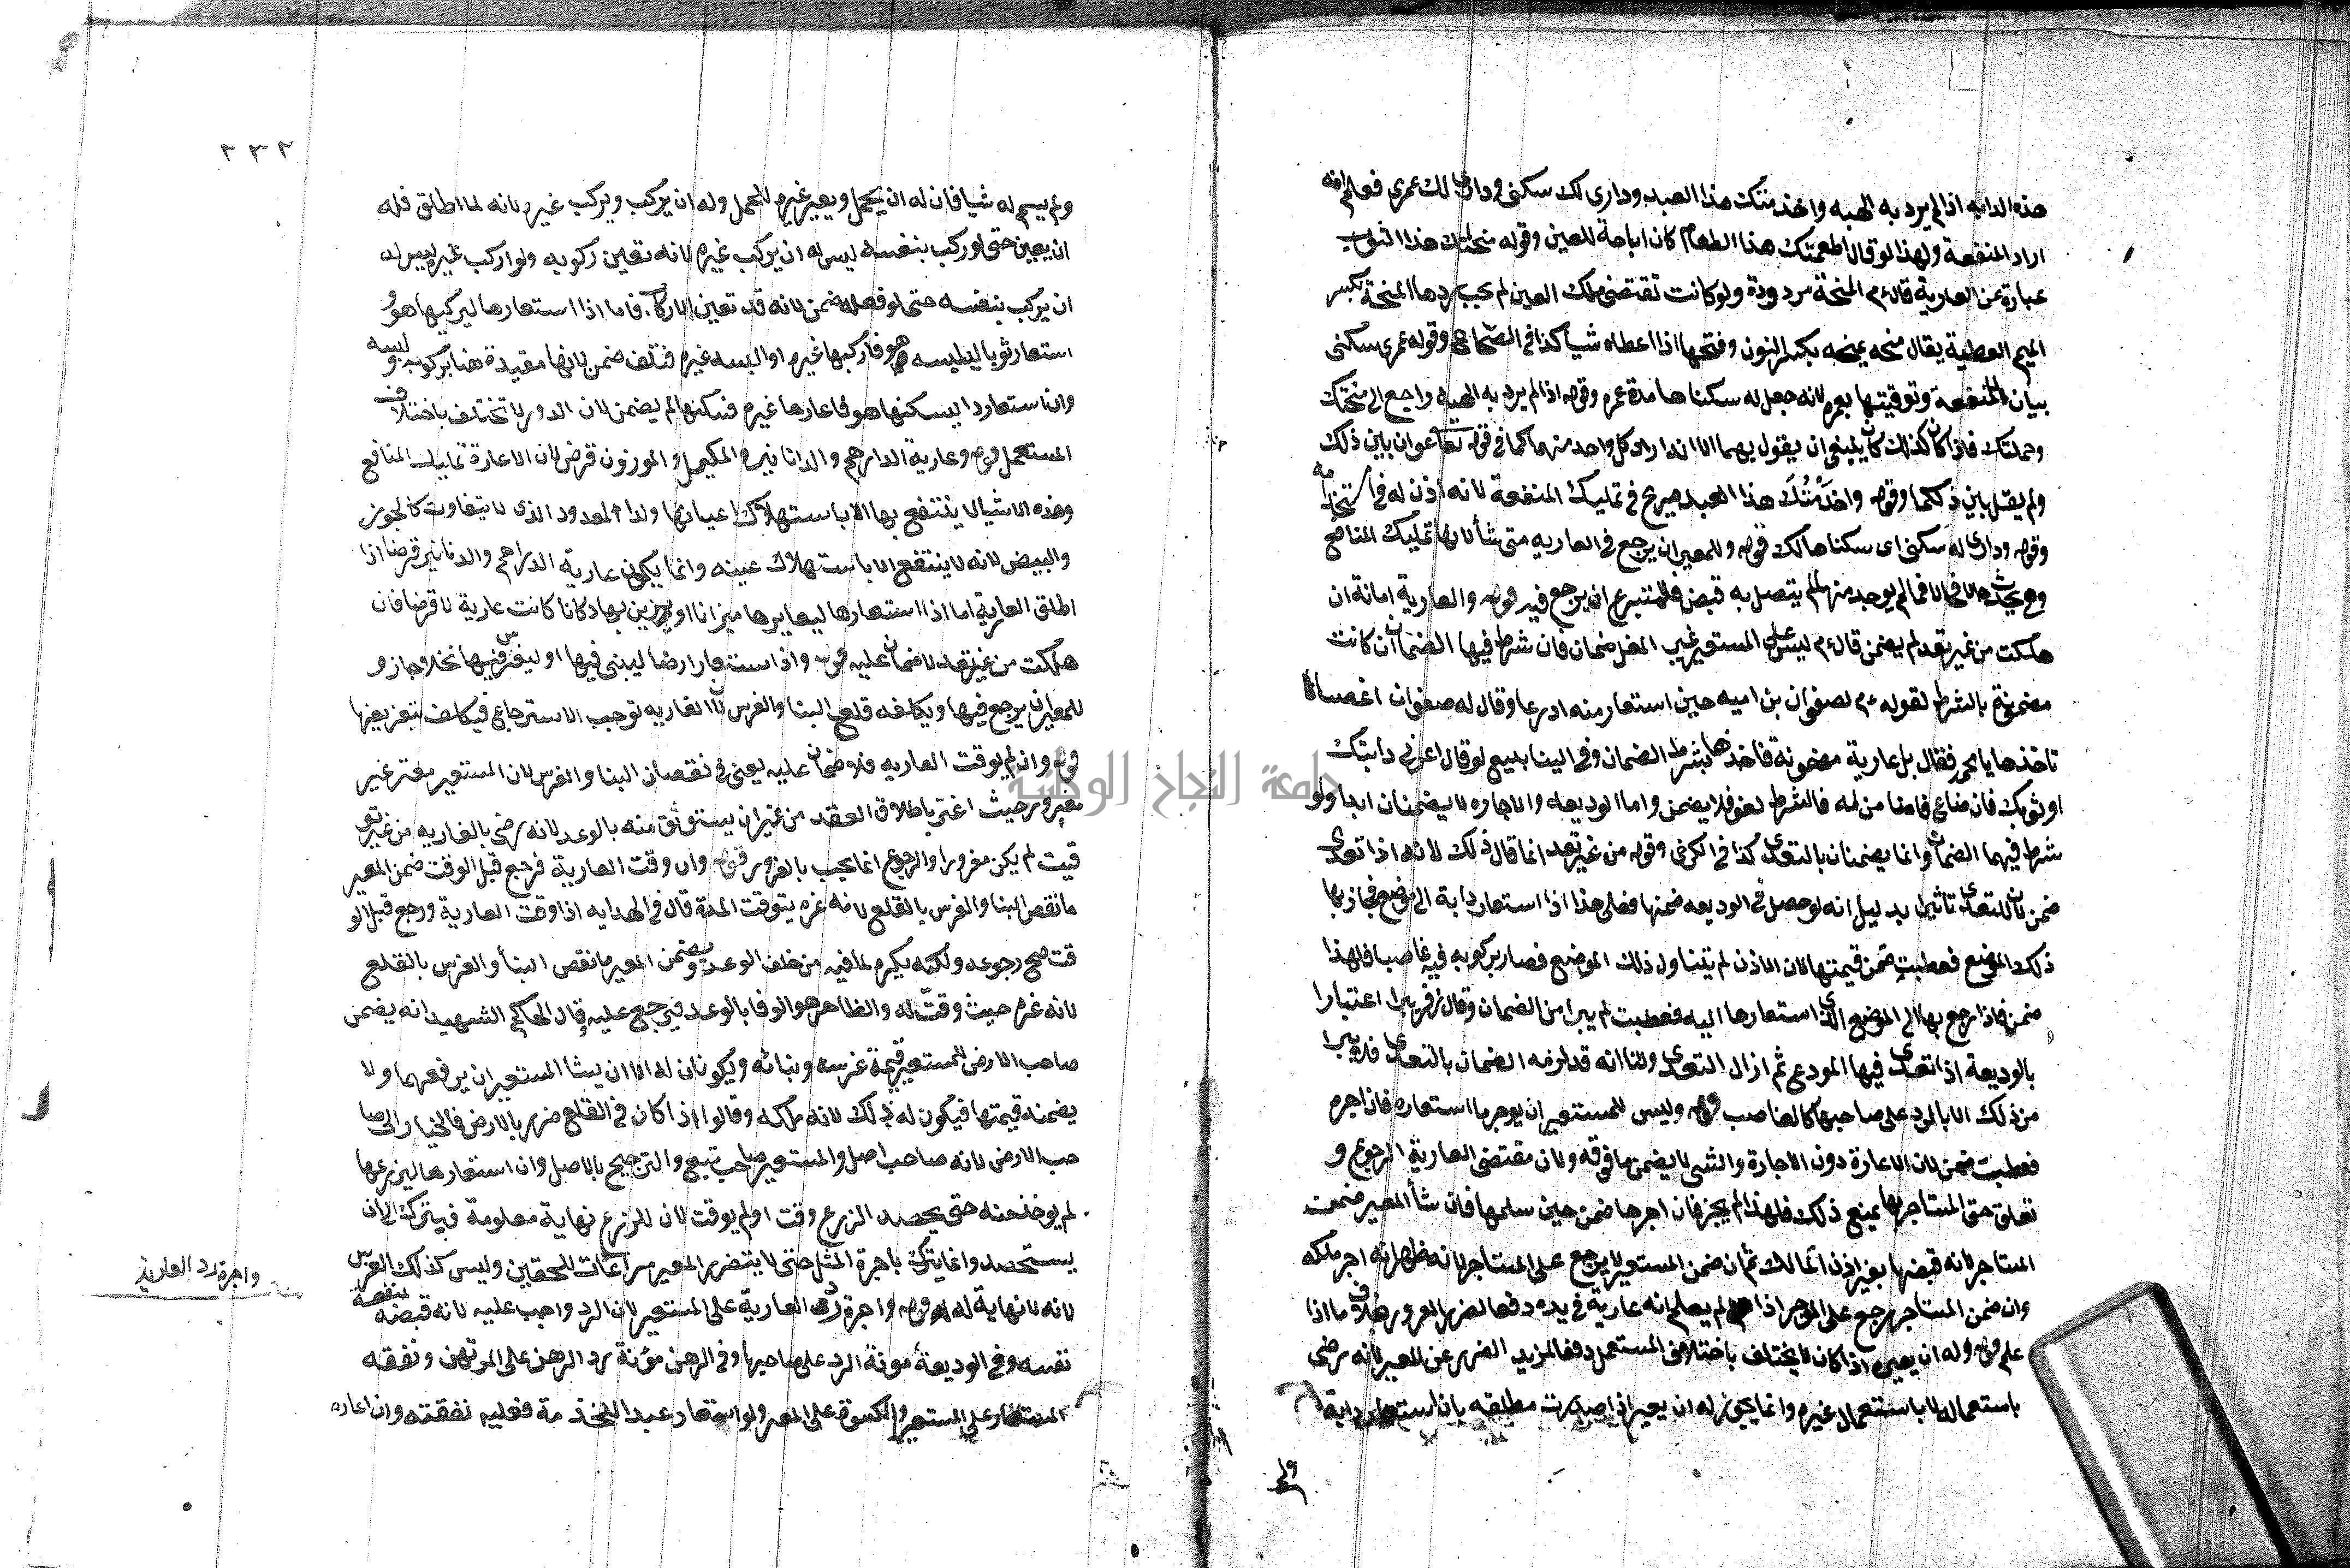 هذه الدابه اذا لم يرد به الهبه واخدمتك هذا العبد وداري لك سكنى وداري لك عمري فعلم انه
اراد المنفعة ولهذا لو قال اطعمتك هذا الطعام كان اباحة للعين وقوله منحتك هذا الثوب
عبارة عن العارية قال ءم المنحة مردودة ولو كانت تقتضي ملك العين لم يجب ردها المنحة بكسر
الميم العطية يقال منحه يمنحه بكسر النون وفتحها اذا اعطاه شيا كذا في الصحاح وقوله عمري سكنى
بيان للمنفعة وتوقيتها بعمره لانه جعل له سكناها مدة عمره وقوله اذا لم يرد به الهبه راجع الى منحتك
وحملتك فاذا كان كذلك كان ينبغي ان يقول بهما الا انه اراد كل واحد منهما كما في قوله تعا عوان بين ذلك
ولم يقل بين ذلكما وقوله واخدمتك هذا العبد صريح في تمليك المنفعة لانه اذن له في استخدامه
وقوله وداري له سكنى اي سكناها لك قوله وللمعير ان يرجع في العاريه متى شأ لانها تمليك المنافع
وهي يحدث حالا فحالا فما لم يوجد منها لم يتصل به قبض فللمتبرع ان يرجع فيه قوله والعارية امانة ان
هلكت من غير تعد لم يضمن قال ءم ليس على المستعير غير المغل ضمان فان شرط فيها الضمان كانت
مضمونة بالشرط لقوله ءم لصفوان بن اميه حين استعار منه ادرعا وقال له صفوان اغصبا
تاخذها يا محمد فقال بل عارية مضمونة فاخذها بشرط الضمان وفي الينابيع لو قال اعرني دابتك
او ثوبك فان ضاع فانا ضامن له فالشرط لغو فلا يضمن واما الوديعه والاجاره لا يضمنان ابدا ولو
شرط فيهما الضمان وانما يضمنان بالتعدي كذا في الكرخي وقوله من غير تعد انما قال ذلك لانه اذا تعدى
ضمن لان للتعدي تاثيرا بدليل انه لو حصل في الوديعه ضمنها فعلى هذا اذا استعار دابة الى موضع فجاز بها
ذلك الموضع فعطبت ضمن قيمتها لان الاذن لم يتناول ذلك الموضع فصار بركوبه فيه غاصبا فلهذا
ضمن فاذا رجع بها الى الموضع الذي استعارها اليه فعطبت لم يبرا من الضمان وقال زفر يبرا اعتبارا
بالوديعة اذا تعدى فيها المودع ثم ازال التعدي ولنا انه قد لزمه الضمان بالتعدي فلا يبرا
من ذلك الا بالرد على صاحبها كالغاصب قوله وليس للمستعير ان يوجر ما استعاره فان اجره
فعطبت ضمن لان الاعارة دون الاجارة والشي لا يضمن ما فوقه ولان مقتضى العارية الرجوع و
تعلق حق المستاجر بها يمنع ذلك فلهذا لم يجز فان اجرها ضمن حين سلمها فان شأ المعير ضمن
المستاجر لانه قبضها بغير اذن المالك ثم ان ضمن المستعير لا يرجع على المستاجر لانه ظهر انه اجر ملكه
وان ضمن المستاجر رجع على الموجر اذا لم يعلم انه عاريه في يده دفعا لضرر الغرور بخلاف ما اذا
علم قوله وله ان يعيره اذا كان لا يختلف باختلاف المستعمل دفعا لمزيد الضرر عن المعير لانه رضي
باستعماله لا باستعمال غيره وانما يجوز له ان يعير اذا صدرت مطلقه بان استعار دابة
ولم
٢٣٢
ولم يسم له شيا فان له ان يحمل ويعير غيره للحمل وله ان يركب ويركب غيره لانه لما اطلق فله
ان يعين حتى لو ركب بنفسه ليس له ان يركب غيره لانه تعين ركوبه ولو اركب غيره ليس له
ان يركب بنفسه حتى لو فعله ضمن لانه قد تعين الاركاب فاما اذا استعارها ليركبها هو و
استعار ثوبا ليلبسه هو فاركبها غيره او البسه غيره فتلف ضمن لانها مقيدة هنا بركوبه ولبسه
وان استعار دارا ليسكنها هو فاعارها غيره فسكنها لم يضمن لان الدور لا تختلف باختلاف
المستعمل قوله وعارية الدارهم والدانانير والمكيل والموزون قرض لان الاعارة تمليك المنافع
وهذه الاشيا لا ينتفع بها الا باستهلاك اعيانها ولذا المعدود الذي لا يتفاوت كالجوز
والبيض لانه لا ينتفع الا باستهلاك عينه وانما يكون عارية الدراهم والدنانير قرضا اذا
اطلق العارية اما اذا استعارها ليعاير ها ميزانا او يزين بها دكانا كانت عارية لا قرضا فان
هلكت من غير تعد لا ضمان عليه قوله واذا استعار ارضا ليبني فيها او ليغرس فيها نخلا جاز و
للمعير ان يرجع فيها ويكلفه قلع البنا والغرس لان العاريه توجب الاسترجاع فيكلف تفريغها
قوله وان لم يوقت العاريه فلا ضمان عليه يعني في نقصان البنا والغرس لان المستعير مغتر غير
مغرور حيث اغتر باطلاق العقد من غير ان يستوثق منه بالوعد لانه رضي بالعاريه من غير تو
قيت لم يكن مغرورا والرجوع انما يجب بالغرور قوله وان وقت العارية فرجع قبل الوقت ضمن المعير
ما نقص البنا والغرس بالقلع لانه غره بتوقت المدة قال في الهدايه اذا وقت العارية ورجع قبل الو
قت صح رجوعه ولكنه يكره لما فيه من خلف الوعد ويضمن المعير ما نقص البنأ والغرس بالقلع
لانه غره حيث وقت له والظاهر هو الوفا بالوعد فيرجع عليه قال الحاكم الشهيد انه يضمن
صاحب الارض للمستعير قيمة غرسه وبنائه ويكونان له الا ان يشا المستعير ان يرفعهما ولا
يضمنه قيمتها فيكون له ذلك لانه ملكه وقالوا اذا كان في القلع ضرر بالارض فالخيار الى صا
حب الارض لانه صاحب اصل والمستعير صاحب تبع والترجيح بالاصل وان استعارها ليزرعها
لم يوخذ منه حتى يحصد الزرع وقت او لم يوقت لان للزرع نهاية معلومة فيترك الى ان
يستحصد وانما يترك باجرة المثل حتى لا يتضرر المعير مراعات للحقين وليس كذلك الغرس
لانه لا نهاية له قوله واجرة رد العارية على المستعير لان الرد واجب عليه لانه قبضه لمنفعة
نفسه وفي الوديعة مونة الرد على صاحبها وفي الرهن مؤنة رد الرهن على المرتهن ونفقه
المستعار على المستعير والكسوة على المعير ولو استعار عبدا للخدمة فعليه نفقته وان اعاره
واجرة رد العارية
جامعة النجاح الوطنية